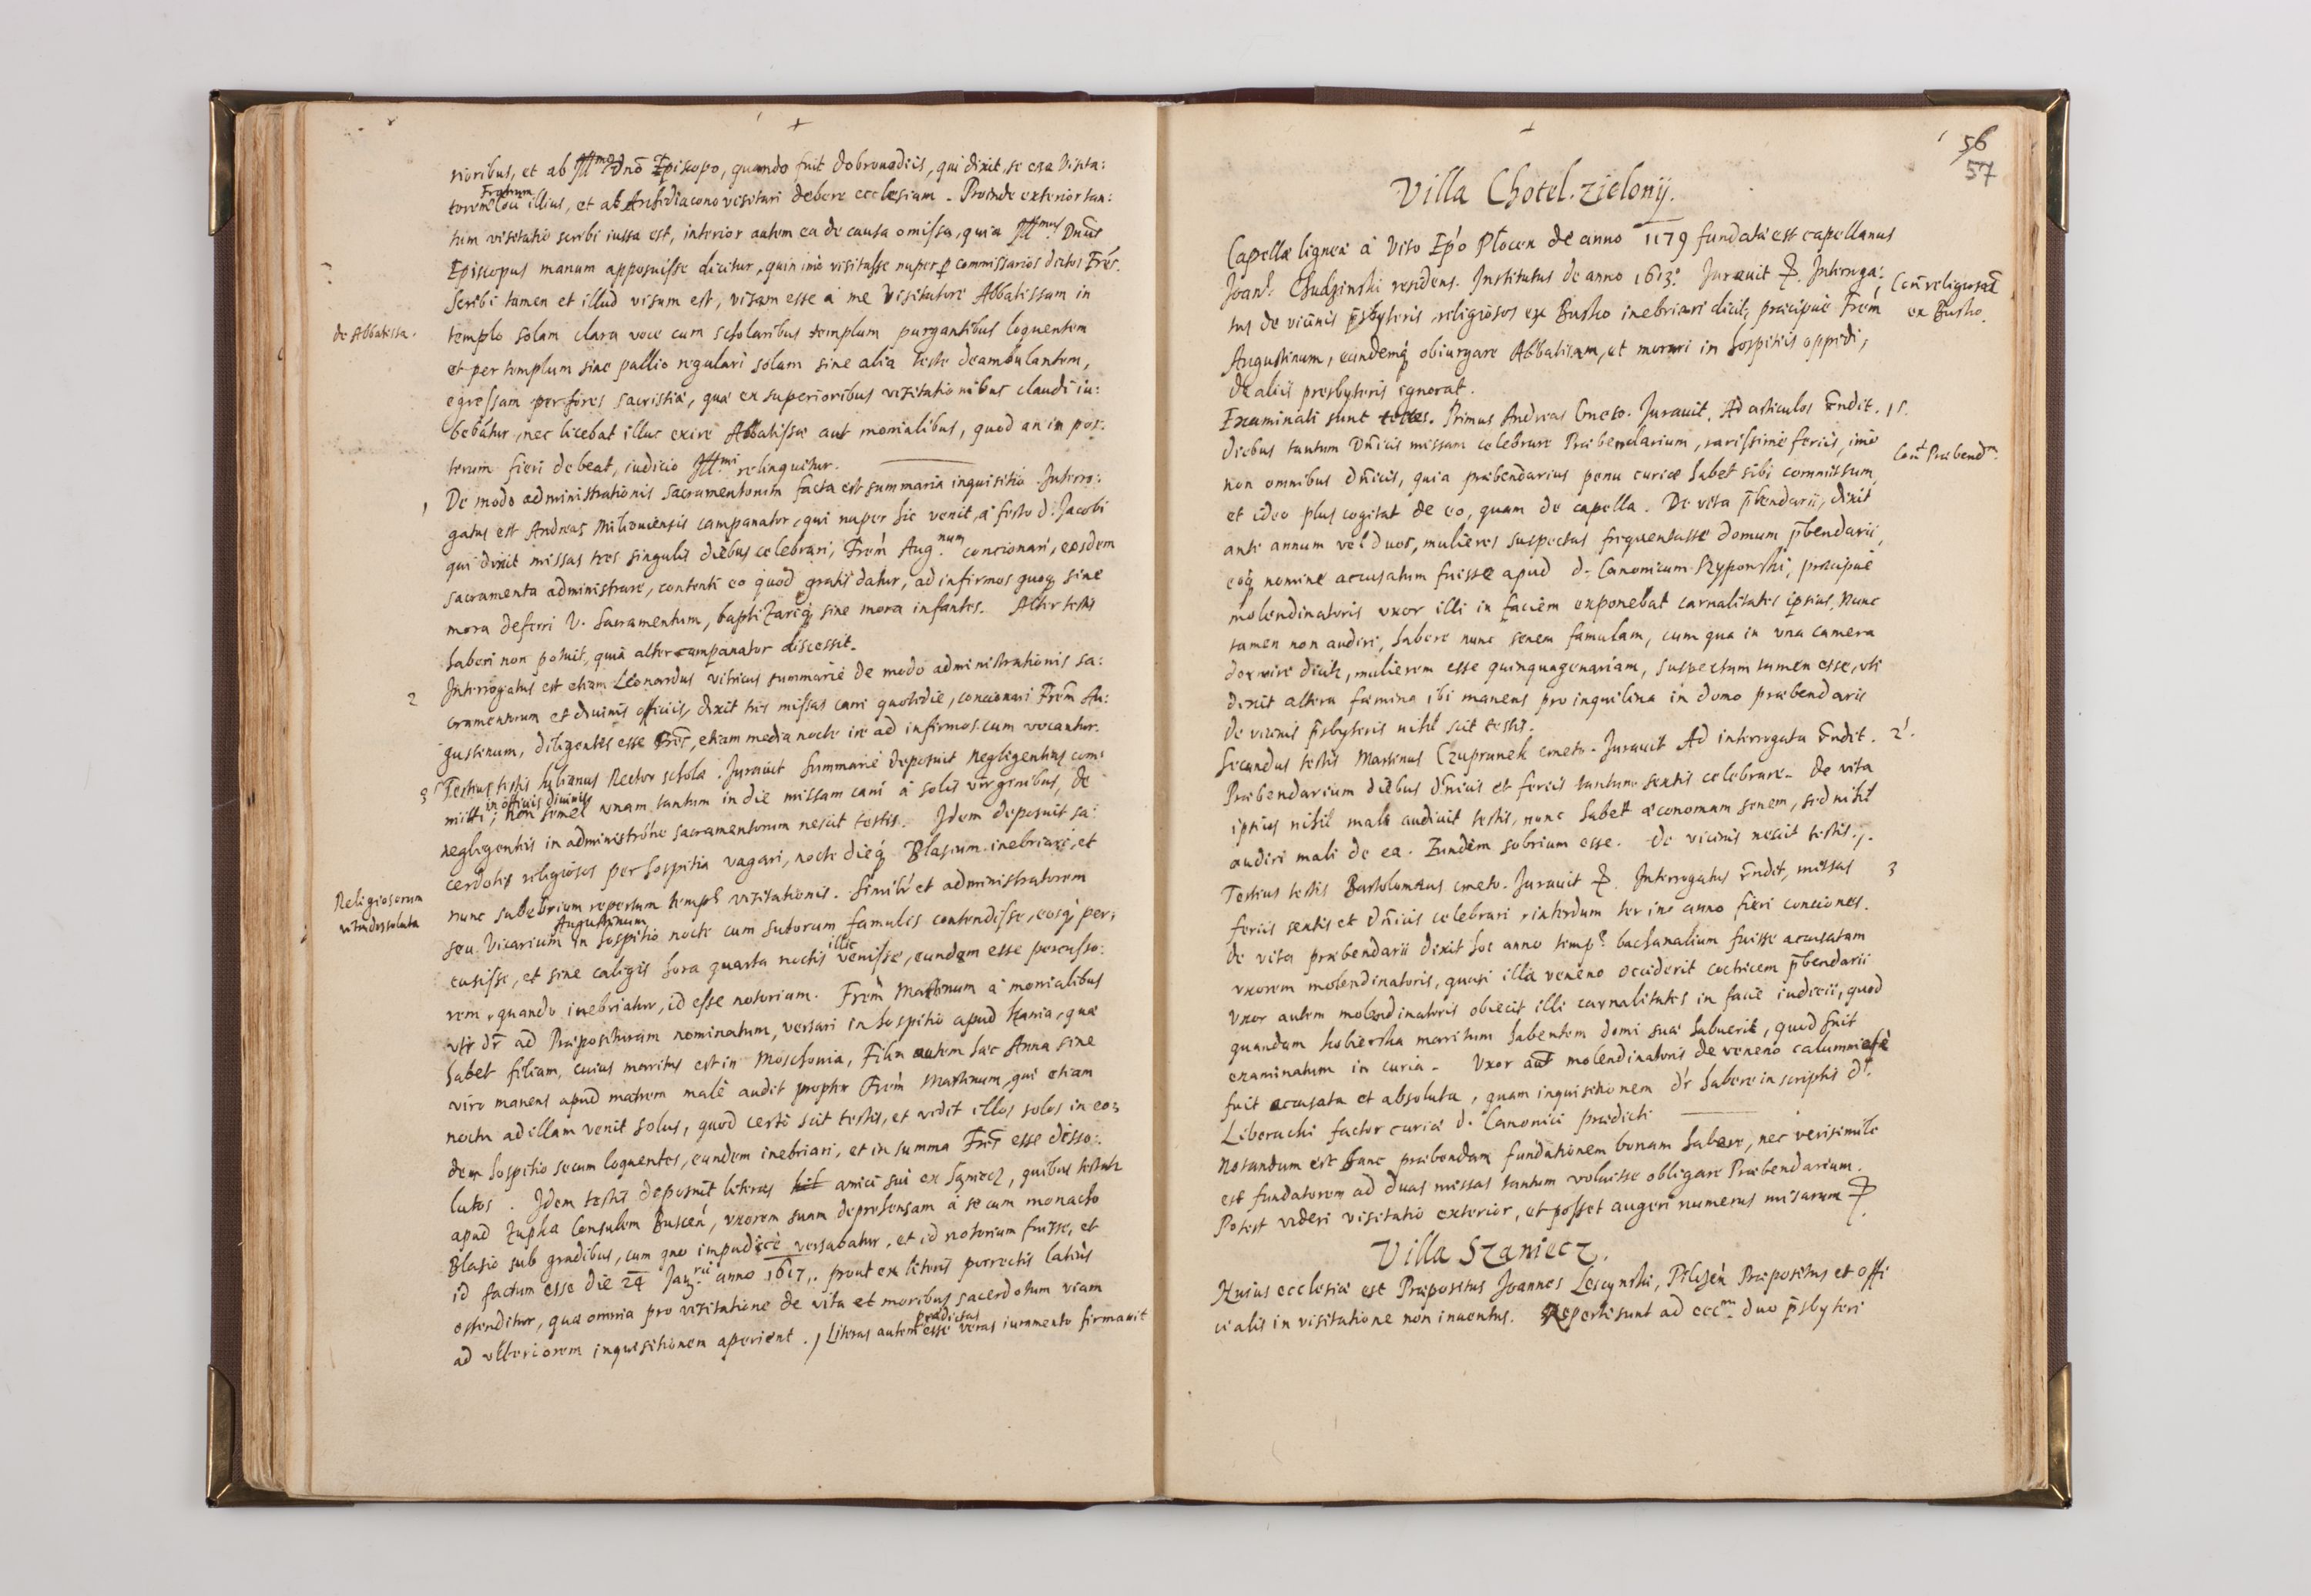 rioribus, et ab Illmo Dnō Episcopo, quando fuit dobrouodiis, qui dixit, se esse Visita:
torem loci Fratrum illius, et ab Archidiacono visitari debere ecclesiam. Proinde exterior tan:
tum visitatio scribi iussa est, interior autem ea de causa omissa, quia Illmus Dnūs
Episcopus manum apposuisse dicitur, quin imò visitasse nuper p commissarios dictos Frēs.
Scribi tamen et illud visum est, visam esse à me Visitatore Abbatissam in
de Abbatissa.
templo solam clara voce cum scholaribus templum purgantibus loquentem
et per templum sine pallio regulari solam sine alia teste deambulantem,
egressam per fores sacristiæ, quæ ex superioribus visitationibus claudi iu:
bebatur, nec licebat illuc exire Abbatissæ aut monialibus, quod an in pos:
terum fieri debeat, iudicio Illmi relinquitur.
1 De modo administrationis sacramentorum facta est summaria inquisitio. Interro:
gatus est Andreas campanator, qui nuper hic venit, à festo d. Jacobi
qui dixit missas tres singulis diebus celebrari, Frem Aug.num concionari, eosdem
sacramenta administrare, contenti eo quod gratis datur, ad infirmos quoq sine
mora deferri V. Sacramentum, baptizariq sine mora infantes. Alter testis
haberi non potuit, quia alter campanator discessit.
2 Interrogatus est etiam Leonardus vitricus summarie de modo administrationis sa:
cramentorum et diuinis officiis, dixit tres missas cani quotidie, concionari Frem Au:
gustinum, diligentes esse Frēs, etiam media nocte ire ad infirmos cum vocantur.
3 Tertius testis Iulianus Rector scholæ. Jurauit summarie deposuit negligentias com:
mitti in officiis diuinis; non semel unam tantum in die missam cani à solis virginibus, de
neglegentiis in administrōne sacramentorum nescit testis. Idem deposuit sa:
cerdotes religiosos per hospitia vagari, nocte dieq. Blasium inebriari, et
Religiosorum
vita dissoluta
nunc subebrium repertum temp visitationis. Simili et administratorem
seu Vicarium Augustinum in hospitio nocte cum sutorum famulis contendisse, eosq per:
cusisse, et sine caligis hora quarta noctis illic venisse, eundem esse percusso:
rem, quando inebriatur, id esse notorium. Frem Martinum à monialibus
uti dr ad Præposituram nominatum, versari in hospitio apud Kania, quæ
habet filiam, cuius maritus est in Moschouia, Filia autem hæc Anna sine
viro manens apud matrem malè audit propter Frem Martinum, qui etiam
noctu ad illam venit solus, quod certò scit testis, et vidit illos solos in eo:
dem hospitio secum loquentes, eundem inebriari, et in summa Frēs esse disso:
lutos. Idem testis deposuit literas amici sui ex Szaniecz, quibus testatur
apud Zupka Consulem Buscen, uxorem suam deprehensam à se cum monacho
Blasio sub gradibus, cum quo impudicè versabatur, et id notorium fuisse, et
id factum esse die 24 Januarii anno 1617, prout ex literis porrectis latius
ostenditur, quæ omnia pro visitatione de vita et moribus sacerdotum viam
ad ulteriorem inquisitionem aperient. Literas autem prædictas esse veras iuramento firmauit
56
57
Villa Chotel. zielony.
Capella lignea à Vito Epo Plocen de anno 1179 fundata est capellanus
Joan. Chudzinski residens. Institutus de anno 1613. Jurauit. Interroga:
Con religiosos
ex Busko.
tus de vicinis psbyteris religiosos ex Busko inebriari dicit, præcipuè Frem
Augustinum, eundemq obiurgare Abbatissam, et morari in hospitiis oppidi,
de aliis presbyteris ignorat.
Examinati sunt testes. Primus Andreas Cmeto. Jurauit. Ad articulos rndit. 1.
diebus tantum Dnicis missam celebrare Præbendarium, rarissimè feriis, imò
Con Præbendm.
non omnibus dnicis, quia præbendarius penu curiæ habet sibi commissum
et ideo plus cogitat de eo, quam de capella. De vita pbendarii, dixit
ante annum vel duos, mulieres suspectas frequentasse domum pbendarii,
eoq nomine accusatum fuisse apud d. Canonicum Ryponski, præcipuè
molendinatoris uxor illi in faciem exponebat carnalitates ipsius, nunc
tamen non audiri, habere nunc senem famulam, cum qua in una camera
dormire dicitur, mulierem esse quinquagenariam, suspectum tamen esse, uti
dixit altera fæmina ibi manens pro inquilina in domo præbendarii
de vicinis psbyteris nihil scit testis.
Secundus testis Martinus Czuprunek cmeto. Jurauit Ad interrogata rndit. 2.
Præbendarium diebus dnicis et feriis tantum sextis celebrare. De vita
ipsius nihil mali audiuit testis, nunc habet æconomam senem, sed nihil
audiri mali de ea. Eundem sobrium esse. De vicinis nescit testis.
Tertius testis Bartolomæus cmeto. Jurauit. Interrogatus rndit, missas 3
feriis sextis et Dnicis celebrari, interdum ter in anno fieri conciones.
De vita præbendarii dixit hoc anno temp bachanalium fuisse accusatam
uxorem molendinatoris, quasi illa veneno occiderit coctricem pbendarii
uxor autem molendinatoris obiecit illi carnalitates in facie iudicii, quod
quandam Kobierska maritum habentem domi suæ habuerit, quod fuit
examinatum in curia. Uxor aut molendinatoris de veneno
fuit accusata et absoluta, quam inquisitionem dr habere in scriptis D.
Liberacki factor curiæ d. Canonici prædicti
Notandum est hanc præbendam fundationem bonam habere, nec verisimile
est fundatorem ad duas missas tantum voluisse obligare Præbendarium.
Potest videri visitatio exterior, et posset augeri numerus misarum
Villa Szaniecz.
Huius ecclesiæ est Præpositus Joannes Lescynski, Pilznen Præpositus et offi
cialis in visitatione non inuentus. Reperti sunt ad eccm duo psbyteri